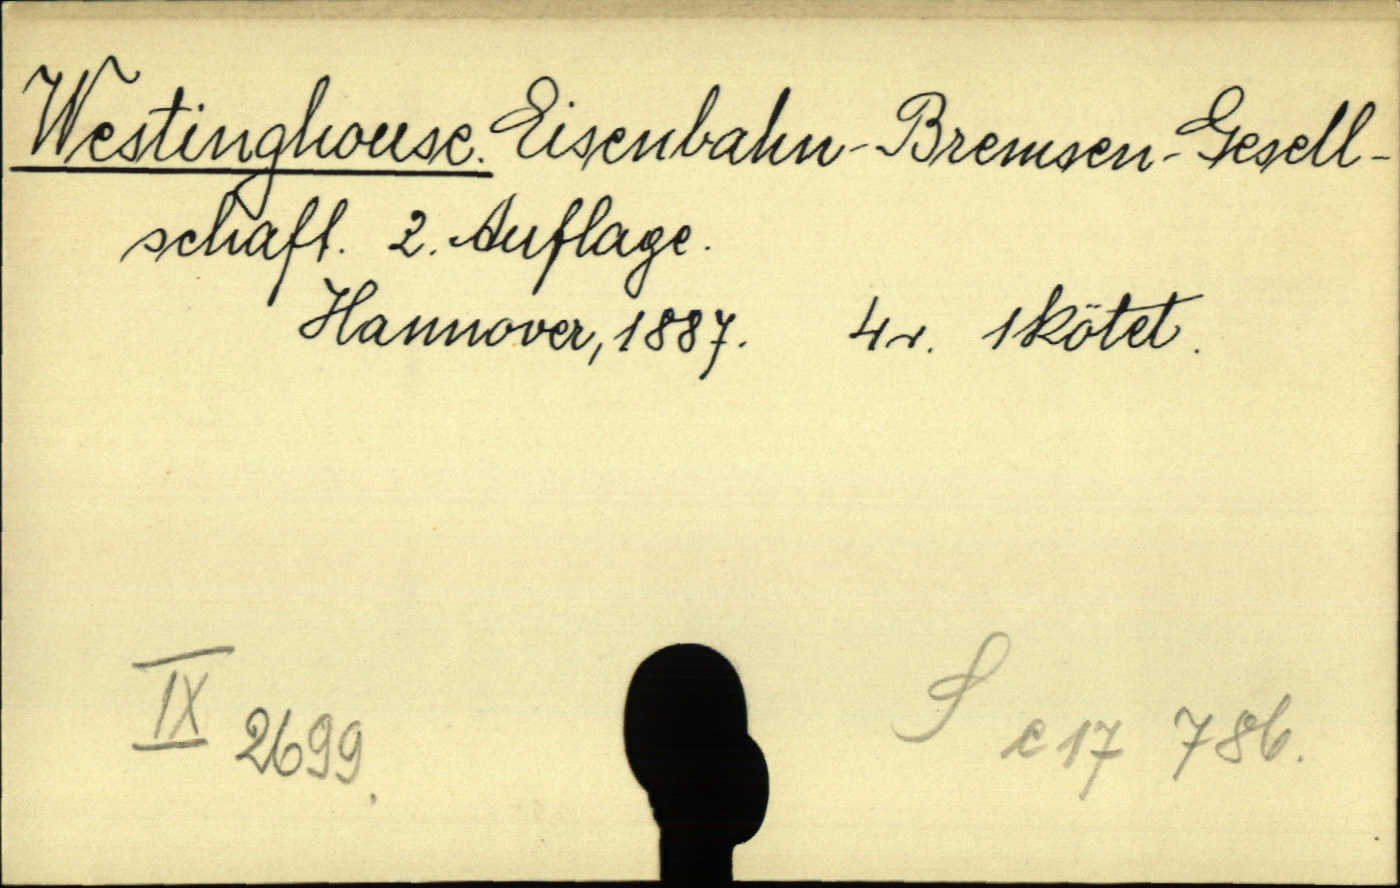 Westinghouse. Eisenbahn-Bremsen-Gesell-
schaft. 2. Auflage.
Hannover, 1887. 4r. 1 kötet.
IX 2699.
S c 17 786.